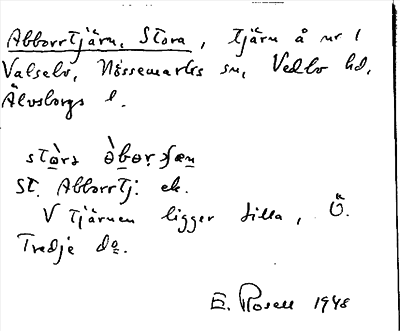 Abborrtjärn, Stora, tjärn å nr 1
Valselv, Nössemarks sn, Vedbo hd,
Älvsborgs l.
stòra
St. Abborrtj. ek.
V tjärnen ligger Lilla, Ö.
Tredje do.
E. Rosell 1948